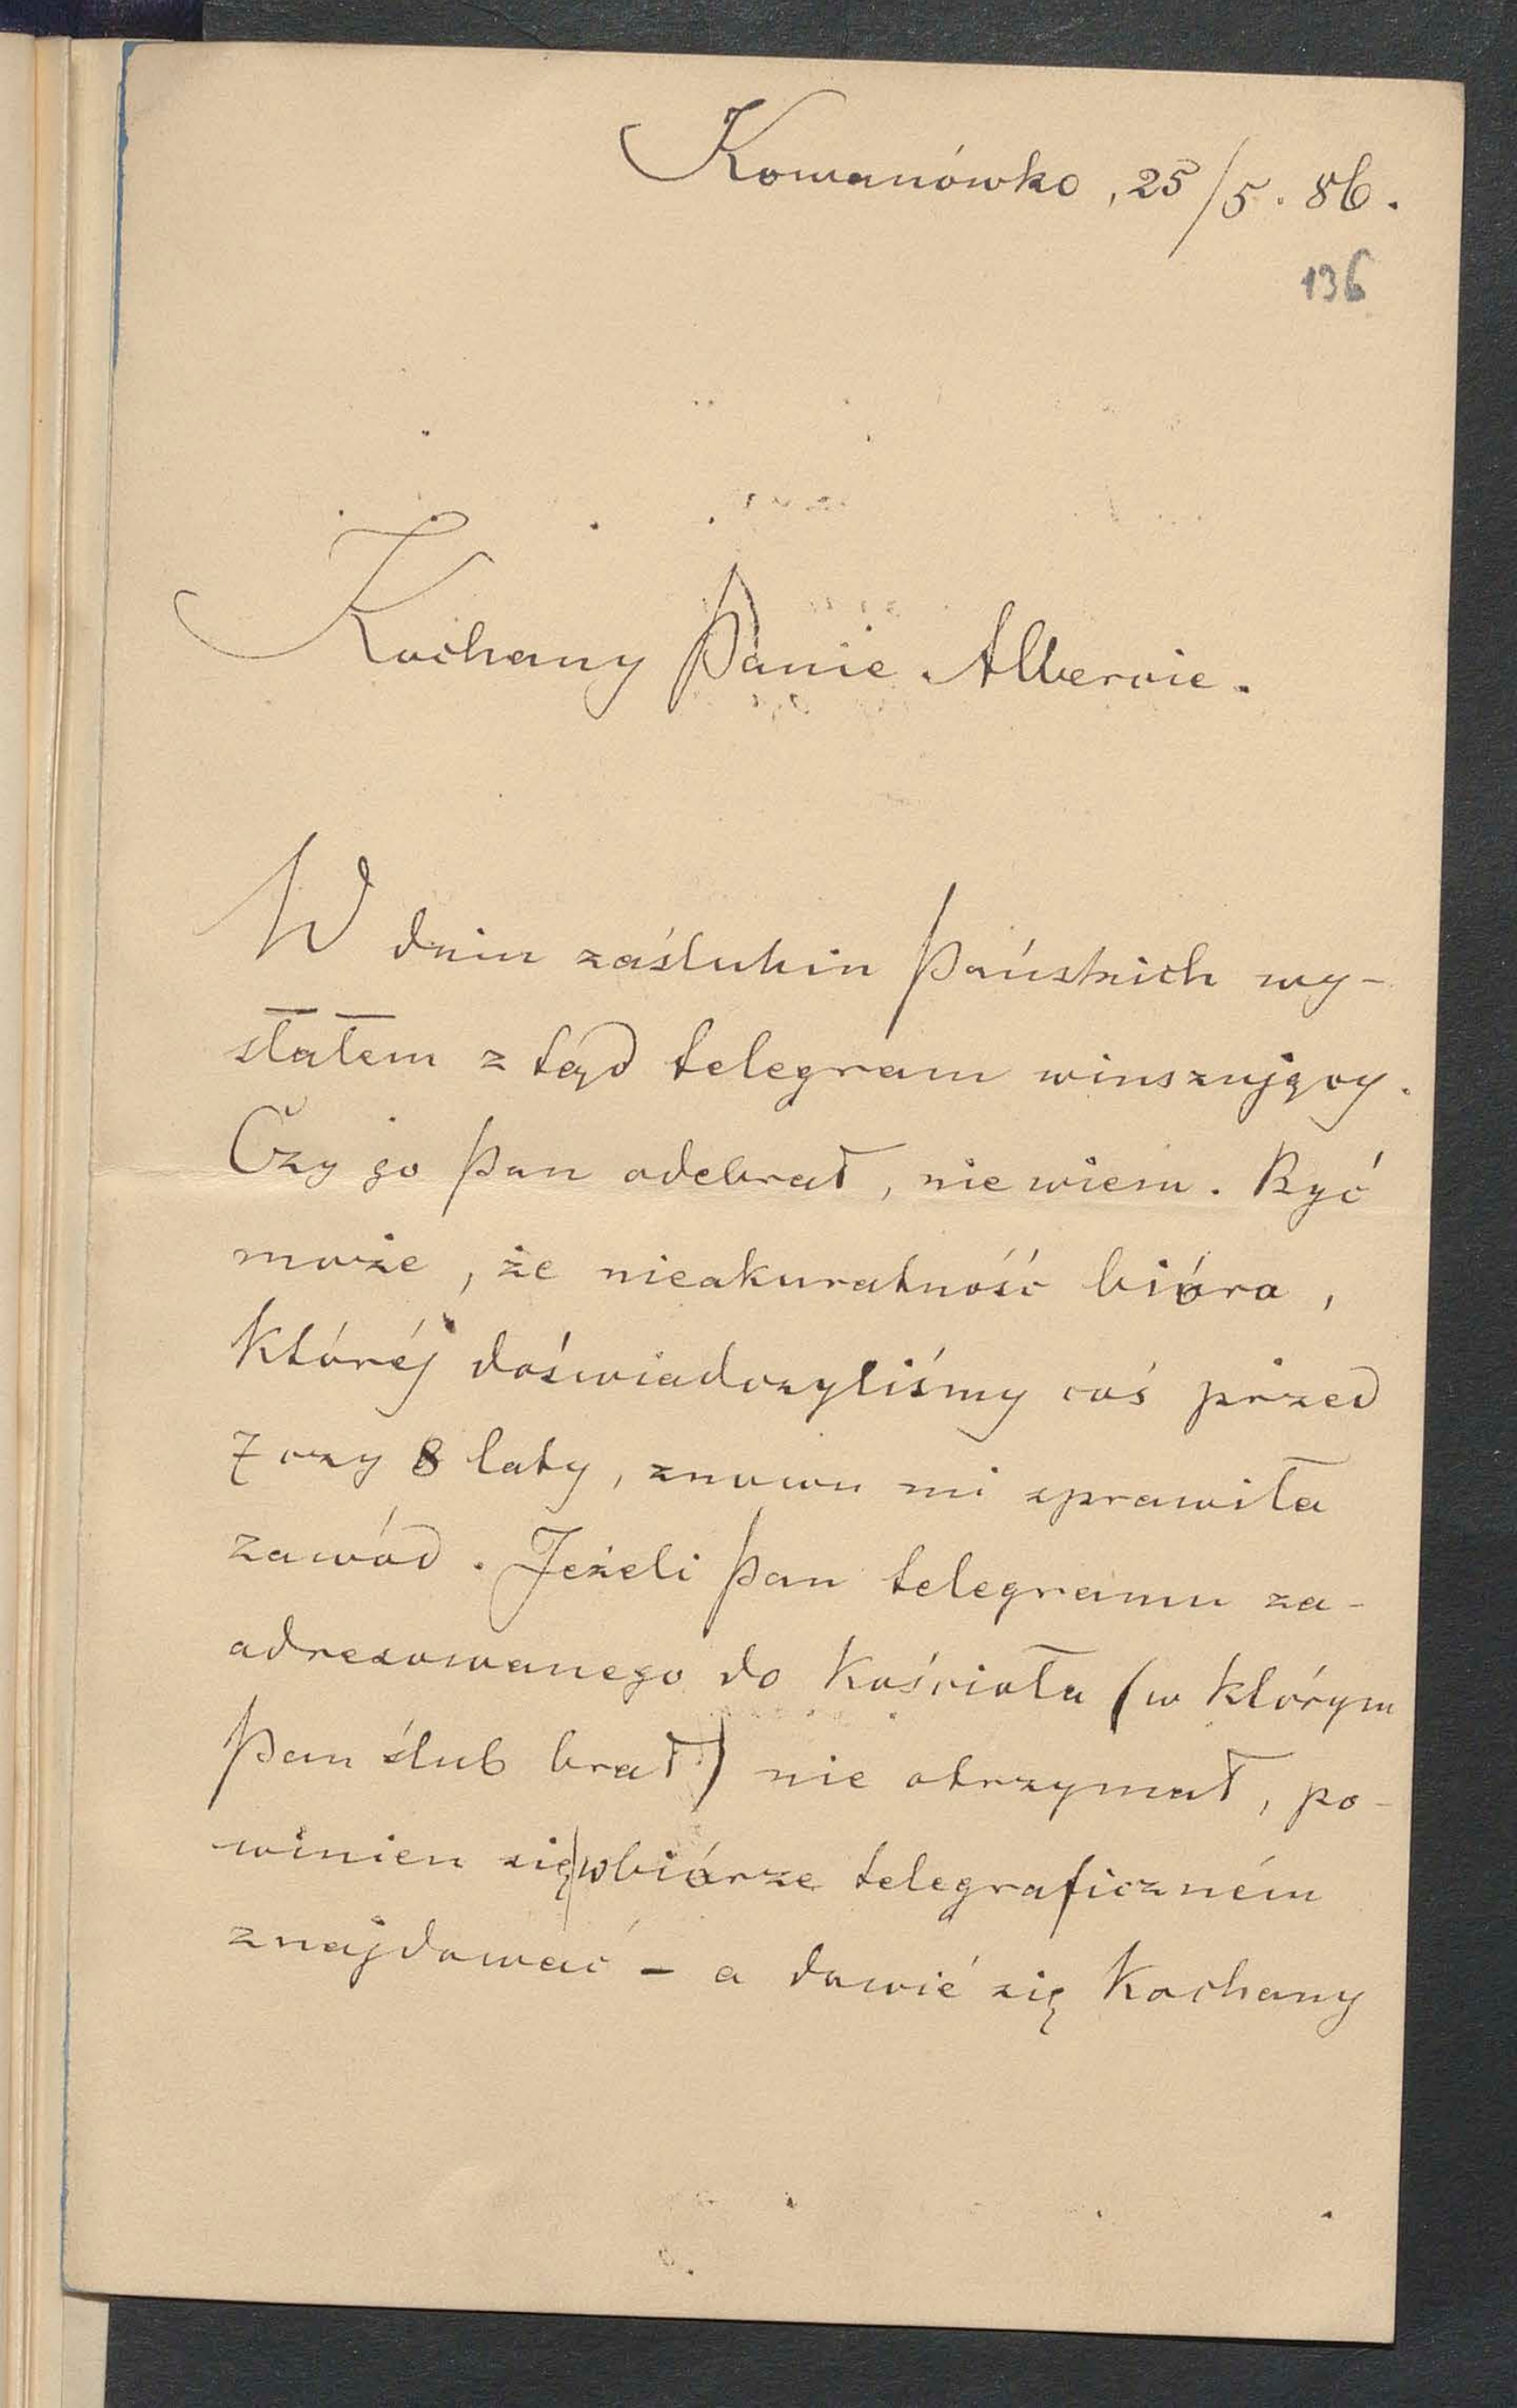 Komanówko, 25/5. 86.
136
Kochany Panie Albercie.
W dniu zaślubin Pańskich wy-
słałem z tąd telegram winszujący.
Czy go Pan odebrał, nie wiem. Być
może, że nieakuratność bióra,
któréj doświadczyliśmy coś przed
7 czy 8 laty, znowu mi sprawiła
zawód. Jeżeli Pan telegramu za-
adresowanego do Kościoła (w którym
Pan ślub brał) nie otrzymał, po-
winien się w biórze telegraficzném
znajdować – a dowié się Kochany